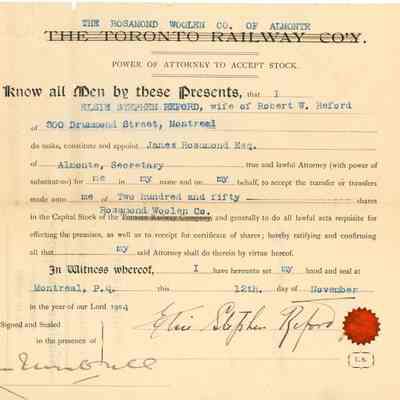 THE ROSAMOND WOOLEN CO. OF ALMONTE
THE TORONTO RAILWAY CO'Y.
POWER OF ATTORNEY TO ACCEPT STOCK.
Know all Men by these Presents, that I
ELSIE STEPHEN REFORD, wife of Robert W. Reford
of 300 Drummond Street, Montreal
do make, constitute and appoint James Rosamond Esq.
of Almonte, Secretary true and lawful Attorney (with power of
substitution) for me in my name and on my behalf, to accept the transfer or transfers
made unto me of Two hundred and fifty shares
in the Capital Stock of the Toronto Railway Company, and generally to do all lawful acts requisite for
Rosamond Woolen Co.
effecting the premises, as well as to receipt for certificate of shares; hereby ratifying and confirming
all that my said Attorney shall do therein by virtue hereof.
In Witness whereof, I have hereunto set my hand and seal at
Montreal, P.Q. this 12th. day of November
in the year of our Lord 1914
Signed and Sealed
in the presence of
Elsie Stephen Reford
L.S.